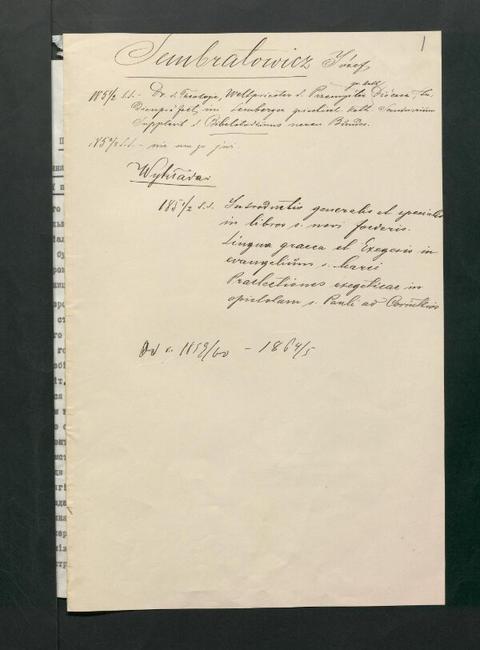 1
Sembratowicz Józef
gr. kath.
185 1/2 s.s. - Dr. d. Teologe, Weltpriester d. Przemysler Diöcese, Stu
Dienpräfect im Lemberger griechisch kath. Seminarium
Supplent d. Bibelstudiums neuen Bundes.
nie ma go już.
Wykłada:
185 1/2 s.s. Introductio generalis et specialis
in libros s. novi foederis.
Lingua graeca et Exegesis in
evangelium s. Marci
Praelectiones exegeticae in
epistolam s. Pauli ad Corinthios
Od r. 1859/60 - 1864/5